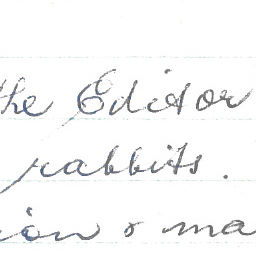 the Editor
rabbits.
ion & ma